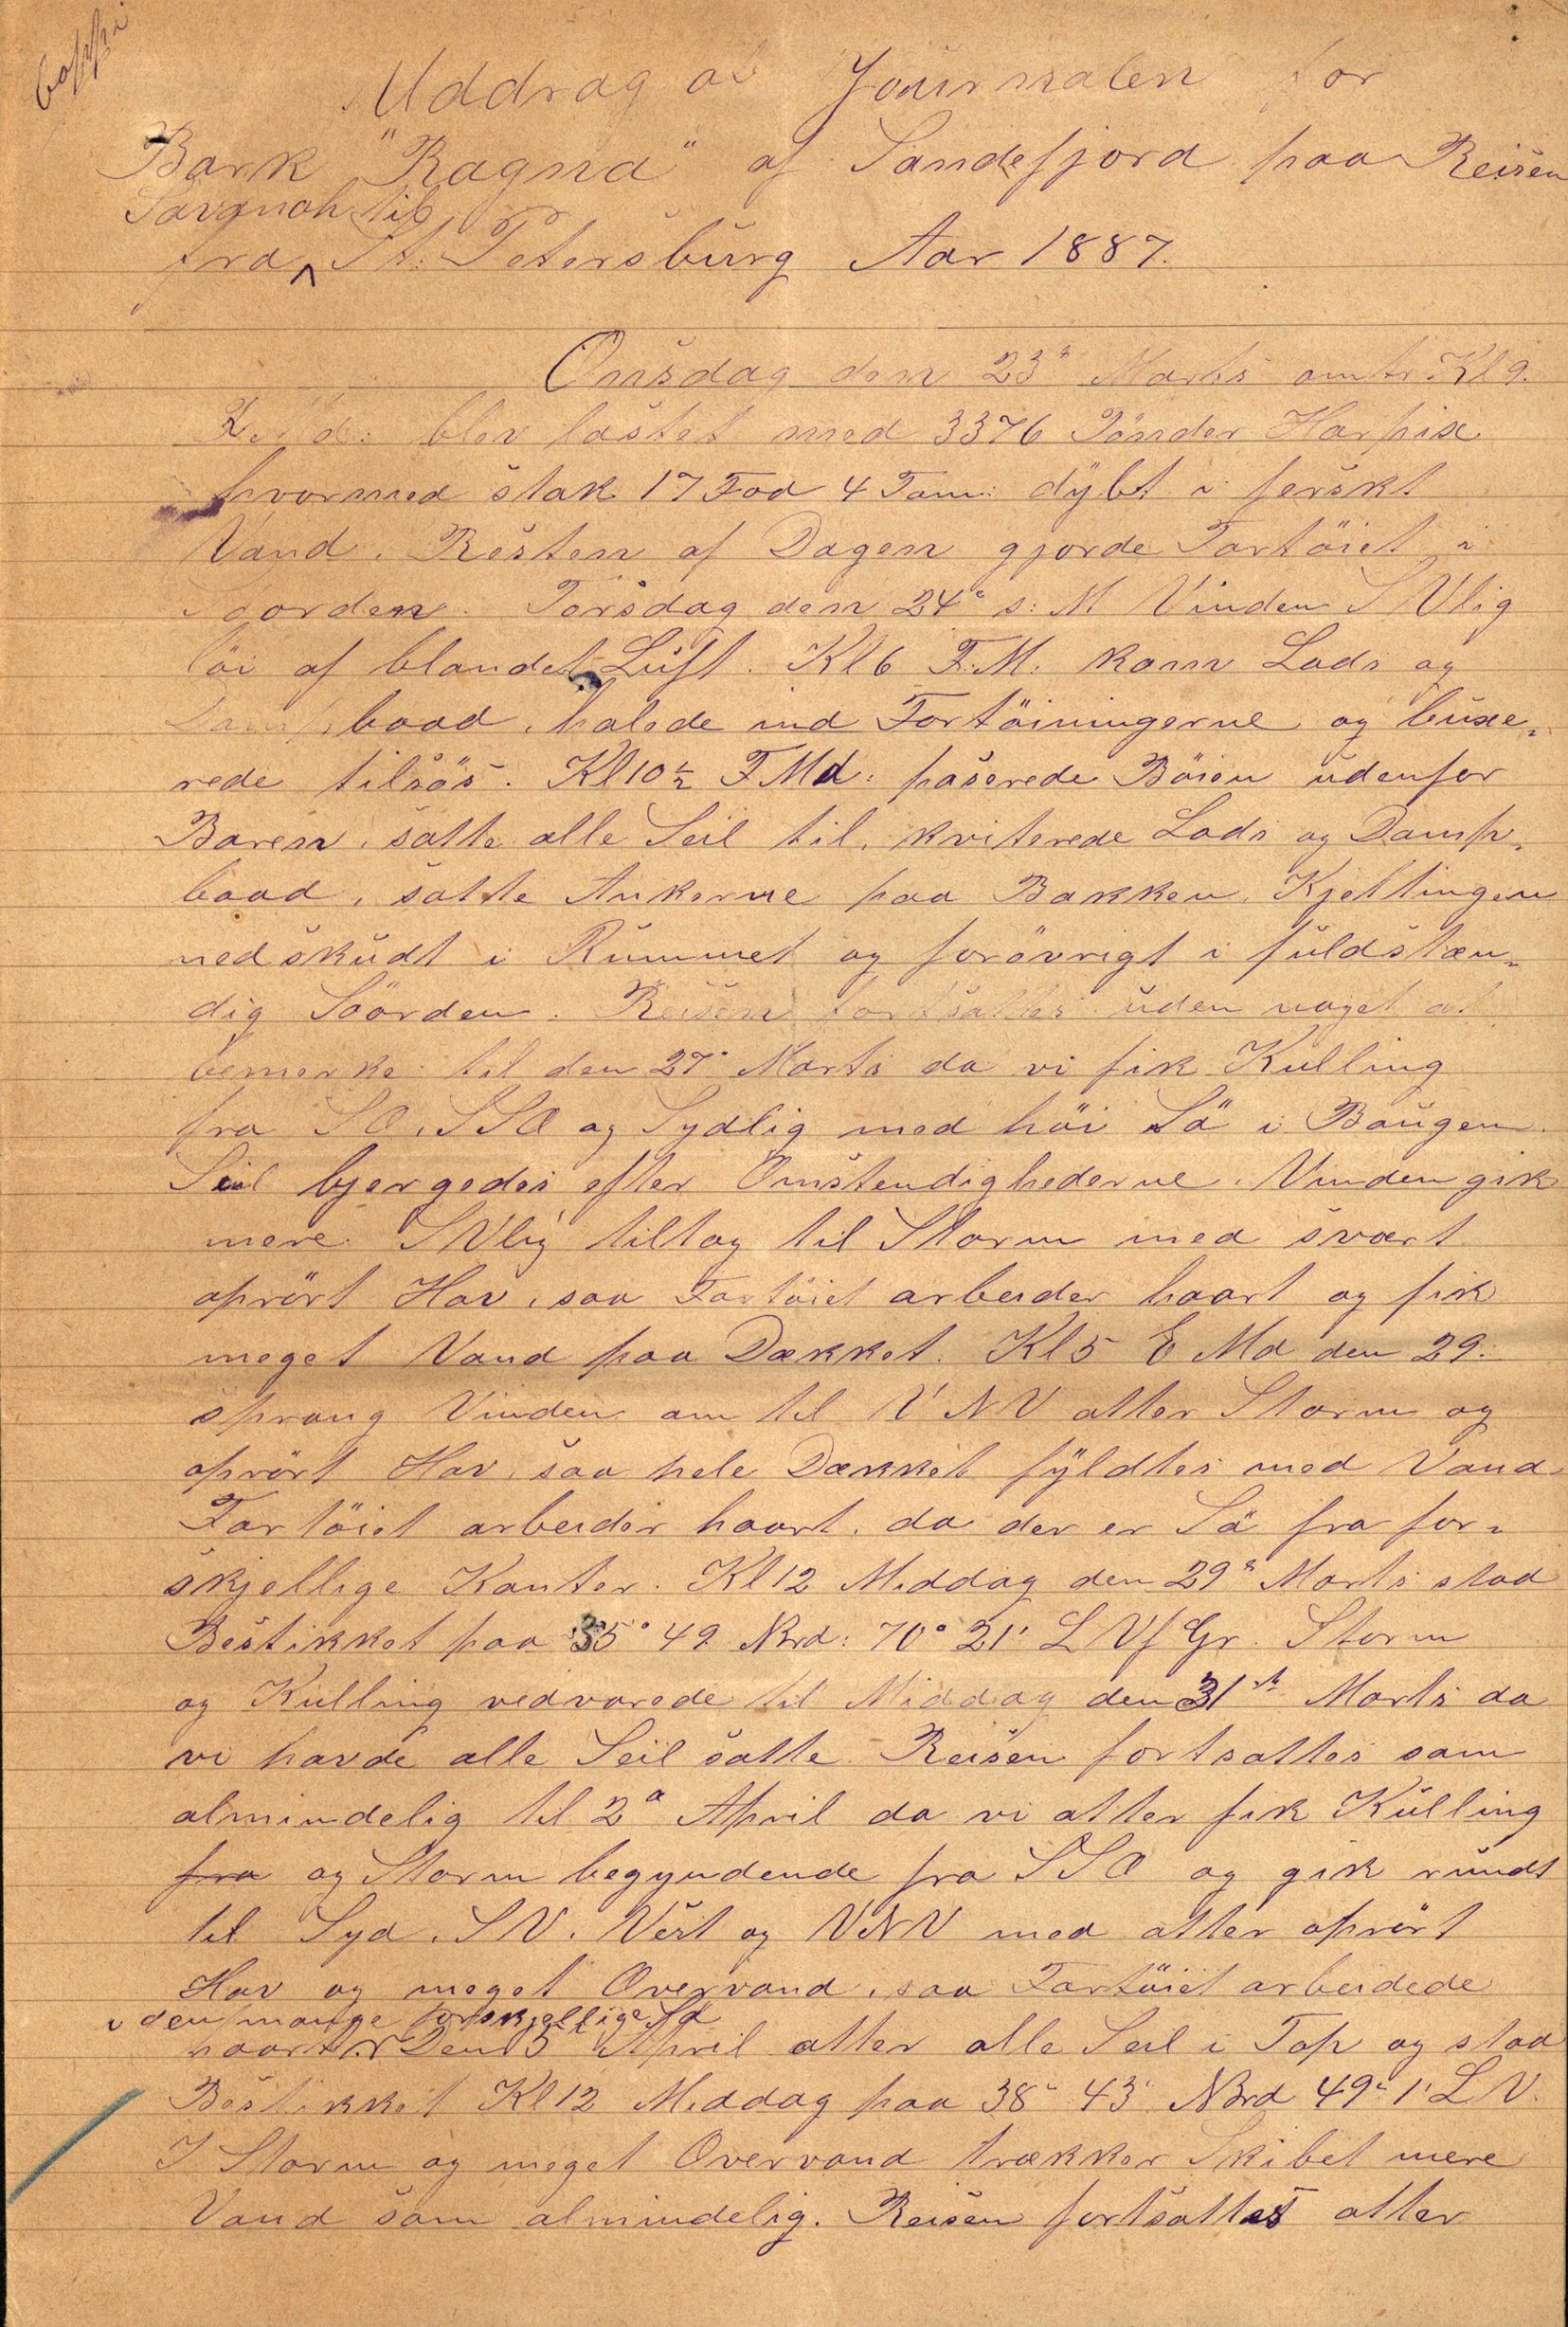 Coppi
Uddrag af Journalen for
Bark "Ragna" af Sandefjord paa Reisen
Savanah til
fra ^ St: Petersburg Aar 1887.
Onsdag den 23de Marts omtr. Kl 9.
blev lastet med 3376 Tönder Harpix
hvormed stak 17 Fod 4 Tom: dybt i ferskt
Vand. Resten af Dagen gjorde Fartöiet i
Söorden. Torsdag den 24de s: M Vinden SVlig
löi af blandet Luft. Kl 6 F.M. kom Lods og
Dampbaad, halede ind Fortöiningerne og buxe-
rede tilsös. Kl 10 1/2 FMd: paserede Böien udenfor
Baren, satte alle Seil til, kviterede Lods og Damp-
baad, satte Ankerne paa Bakken, Kjettingen
nedskudt i Rummet og forövrigt i fuldstæn-
dig Söorden. Reisen fortsattes uden noget at
bemerke til den 27de Marts da vi fik Kulling
fra SO, SSO og Sydlig med höi Sö i Baugen.
Seil bjergedes efter Omstendighederne. Vinden gik
mere SVlig tiltog til Storm med svært
oprört Hav, saa Fartöiet arbeider haart og fik
meget Vand paa Dækket. Kl 5 E Md den 29.
sprang Vinden om til VNV atter Storm og
oprört Hav, saa hele Dækket fyldtes med Vand
Fartöiet arbeider haart, da der er Sö fra for-
skjellige Kanter. Kl 12 Middag den 29de Marts stod
Bestikket paa 35° 49 NBrd: 70° 21' L Vf Gr. Storm
og Kulling vedvarede til Middag den 31te Marts da
vi havde alle Seil satte. Reisen fortsattes som
almindelig til 2den April da vi atter fik Kulling
fra og Storm begyndende fra SSO og gik rundt
til Syd, SV, Vest og VNV med atter oprört
Hav og meget Overvand, saa Fartöiet arbeidede
i den mange forskjellige Sö
haart. Den 5 April atter alle Seil i Top og stod
Bestikket Kl 12 Middag paa 38° 43' NBrd 49° 1' L V.
I Storm og meget Overvand trækker Skibet mere
Vand som almindelig. Reisen fortsattes atter